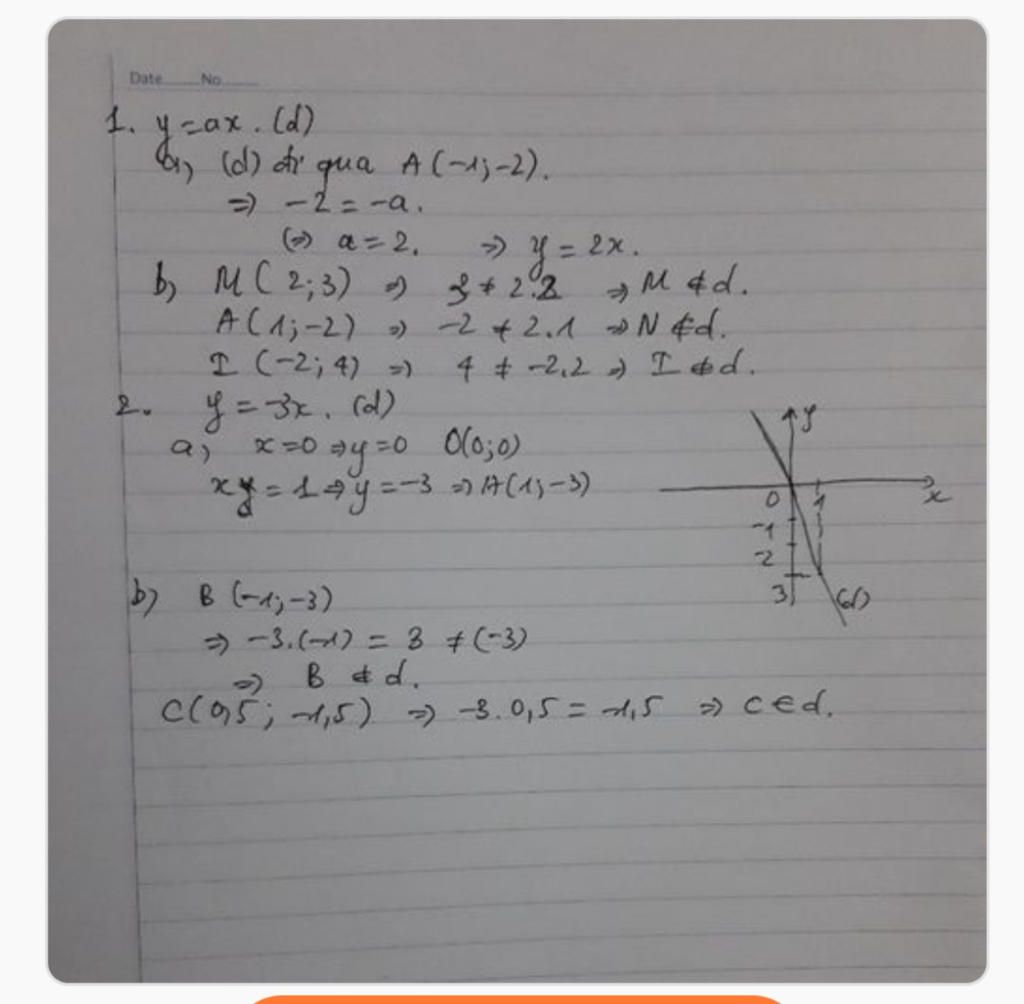 Date No
1. y=ax. (d)
a, (d) đi qua A(-1;-2).
=> -2 = -a.
(=> a = 2. => y = 2x.
b, M( 2;3) => 3 ≠ 2.2 => M ∉ d.
A(1;-2) => -2 ≠ 2.1 => N ∉ d.
I (-2; 4) => 4 ≠ -2.2 => I ∉ d.
2. y = -3x. (d)
a, x=0 => y=0 O(0;0)
x = 1 => y = -3 => A(1;-3)
y
0 1 x
-1
-2
3
(d)
b) B (-1;-3)
=> -3.(-1) = 3 ≠ (-3)
=> B ∉ d.
C(0,5; -1,5) => -3. 0,5 = -1,5 => C ∈ d.